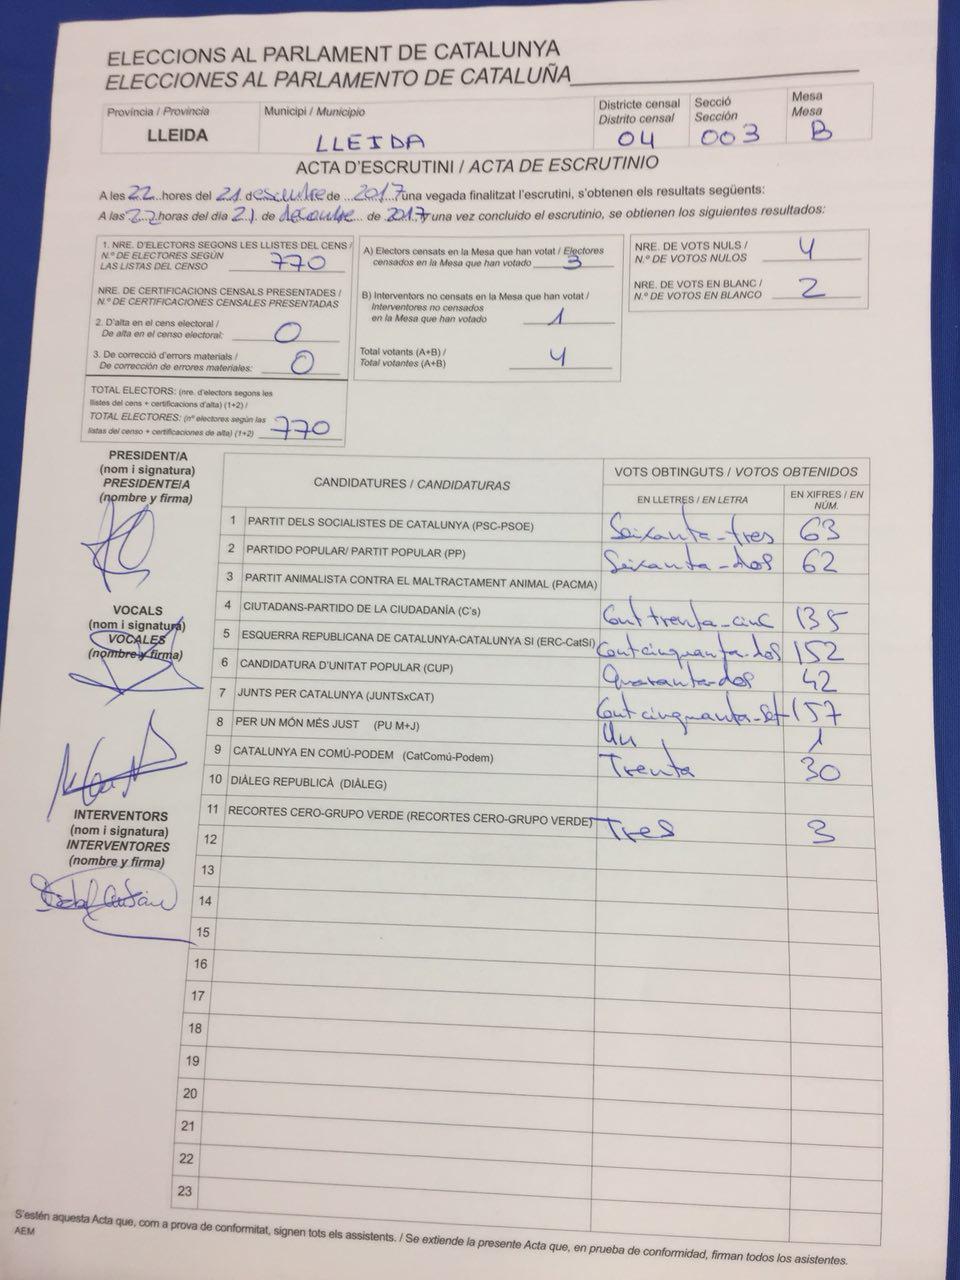 ELECCIONS AL PARLAMENT DE CATALUNYA
ELECCIONES AL PARLAMENTO DE CATALUÑA
Província / Provincia
LLEIDA
Municipi / Municipio
LLEIDA
Districte censal
Distrito censal
04
Secció
Sección
003
Mesa
Mesa
B
ACTA D'ESCRUTINI / ACTA DE ESCRUTINIO
A les 22 hores del 21 de de 2017 una vegada finalitzat l'escrutini, s'obtenen els resultats següents:
A las 22 horas del día 21 de de 2017 y una vez concluido el escrutinio, se obtienen los siguientes resultados:
1. NRE. D'ELECTORS SEGONS LES LLISTES DEL CENS /
N.º DE ELECTORES SEGÚN
LAS LISTAS DEL CENSO 770
NRE. DE CERTIFICACIONS CENSALS PRESENTADES /
N.º DE CERTIFICACIONES CENSALES PRESENTADAS
2. D'alta en el cens electoral /
De alta en el censo electoral: 0
3. De correcció d'errors materials /
De corrección de errores materiales: 0
TOTAL ELECTORS: (nre. d'electors segons les
llistes del cens + certificacions d'alta) (1+2) /
TOTAL ELECTORES: (nº electores según las
listas del censo + certificaciones de alta) (1+2) 770
A) Electors censats en la Mesa que han votat / Electores
censados en la Mesa que han votado 3
B) Interventors no censats en la Mesa que han votat /
Interventores no censados
en la Mesa que han votado 1
Total votants (A+B) /
Total votantes (A+B) 4
NRE. DE VOTS NULS /
N.º DE VOTOS NULOS 4
NRE. DE VOTS EN BLANC /
N.º DE VOTOS EN BLANCO 2
PRESIDENT/A
(nom i signatura)
PRESIDENTE/A
(nombre y firma)
VOCALS
(nom i signatura)
VOCALES
(nombre y firma)
INTERVENTORS
(nom i signatura)
INTERVENTORES
(nombre y firma)
CANDIDATURES / CANDIDATURAS
VOTS OBTINGUTS / VOTOS OBTENIDOS
EN LLETRES / EN LETRA
EN XIFRES / EN NÚM.
1 PARTIT DELS SOCIALISTES DE CATALUNYA (PSC-PSOE) Seixanta-tres 63
2 PARTIDO POPULAR/ PARTIT POPULAR (PP) Seixanta-dos 62
3 PARTIT ANIMALISTA CONTRA EL MALTRACTAMENT ANIMAL (PACMA)
4 CIUTADANS-PARTIDO DE LA CIUDADANÍA (C's) Cent trenta-cinc 135
5 ESQUERRA REPUBLICANA DE CATALUNYA-CATALUNYA SI (ERC-CatSI) Cent cinquanta-dos 152
6 CANDIDATURA D'UNITAT POPULAR (CUP) Quaranta-dos 42
7 JUNTS PER CATALUNYA (JUNTSxCAT) Cent cinquanta-set 157
8 PER UN MÓN MÉS JUST (PU M+J) Un 1
9 CATALUNYA EN COMÚ-PODEM (CatComú-Podem) Trenta 30
10 DIÀLEG REPUBLICÀ (DIÀLEG)
11 RECORTES CERO-GRUPO VERDE (RECORTES CERO-GRUPO VERDE) Tres 3
12
13
14
15
16
17
18
19
20
21
22
23
S'estén aquesta Acta que, com a prova de conformitat, signen tots els assistents. / Se extiende la presente Acta que, en prueba de conformidad, firman todos los asistentes.
AEM